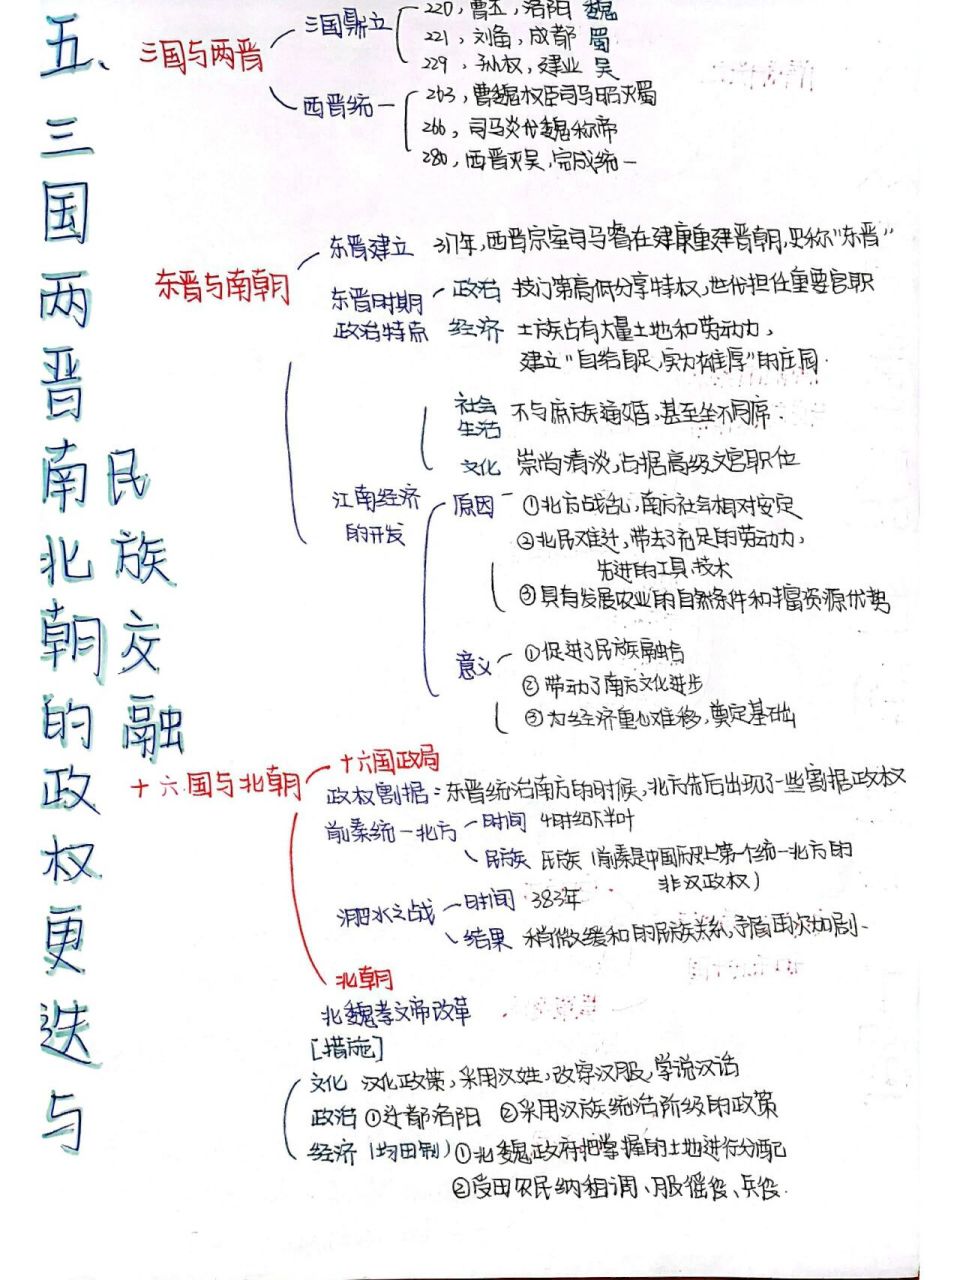 五、三国两晋南北朝的政权更迭与
民族交融
三国与两晋
三国鼎立
220,曹丕,洛阳 魏
221,刘备,成都 蜀
229,孙权,建业 吴
西晋统一
263,曹魏权臣司马昭灭蜀
266,司马炎代魏称帝
280,西晋灭吴,完成统一
东晋与南朝
东晋建立 317年,西晋宗室司马睿在建康重建晋朝,史称"东晋"
东晋时期
政治特点
政治 按门第高低分享特权,世代担任重要官职
经济 士族占有大量土地和劳动力,
建立"自给自足,实力雄厚"的庄园.
社会
生活 不与庶族通婚,甚至坐不同席.
文化 崇尚清谈,占据高级文官职位
江南经济
的开发
原因 ①北方战乱,南方社会相对安定
②北民难迁,带去了充足的劳动力,
先进的工具、技术
③具有发展农业的自然条件和丰富资源优势
意义 ①促进了民族融合
②带动了南方文化进步
③为经济重心难移,奠定基础
十六国与北朝
十六国政局
政权割据:东晋统治南方的时候,北方先后出现了一些割据政权
前秦统一北方
时间 4世纪下半叶
民族 氐族(前秦是中国历史上第一个统一北方的
非汉政权)
淝水之战
时间 383年
结果 稍微缓和的民族关系,矛盾再次加剧.
北朝
北魏孝文帝改革
[措施]
文化 汉化政策,采用汉姓,改穿汉服,学说汉话
政治 ①迁都洛阳 ②采用汉族统治阶级的政策
经济(均田制)①北魏政府把掌握的土地进行分配
②受田农民纳租调、服徭役、兵役.